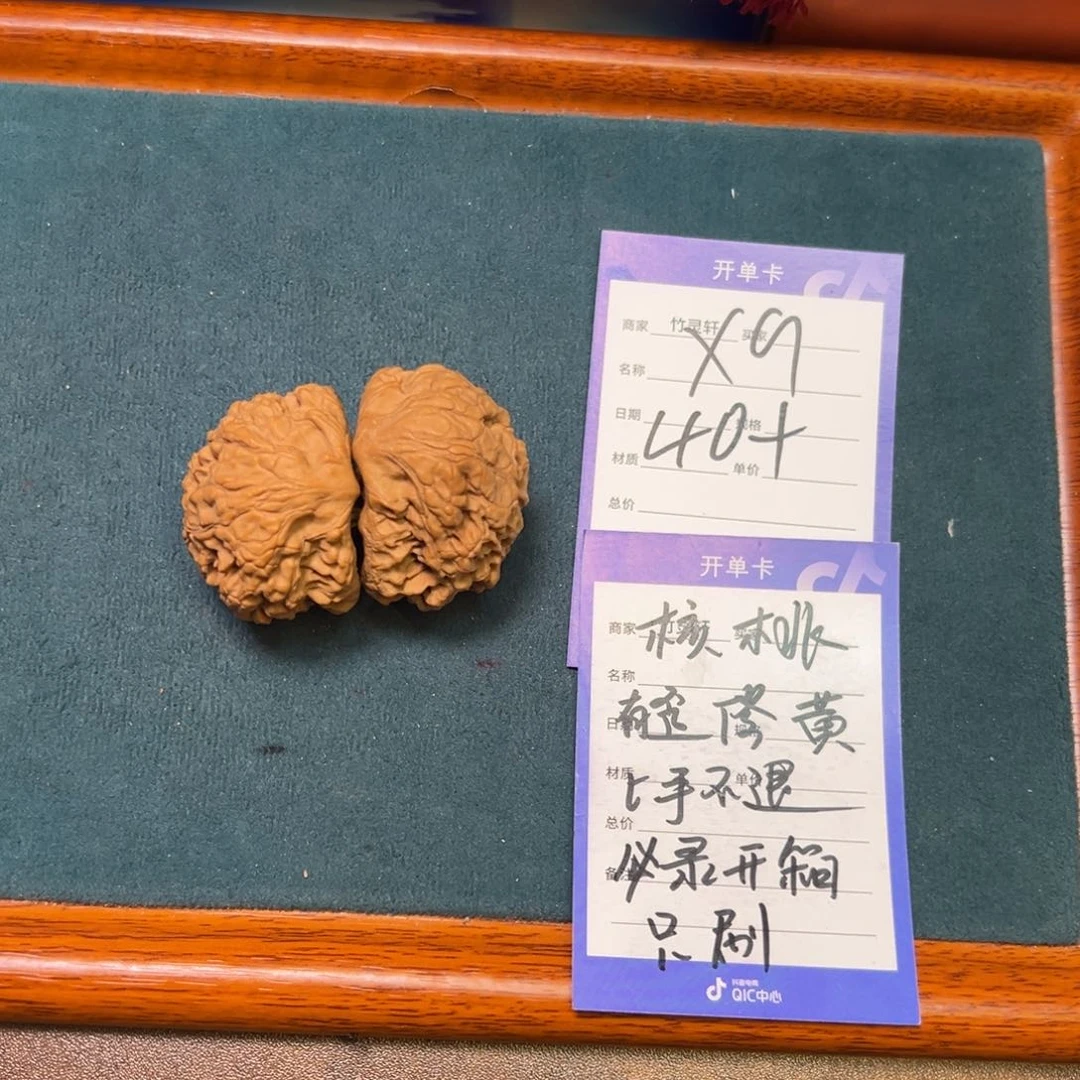 开单卡
商家 竹灵轩 买家
X9
名称
日期 规格
40+
材质 单价
总价
开单卡
商家
核桃
名称
有歪
黄
材质 单价
上手不退
总价
必录开箱
只刷
抖音电商
QIC中心